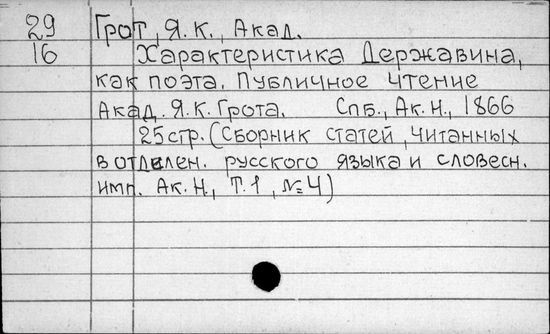 29 Грот, Я. К., Акад.
16 Характеристика Державина,
как поэта. Публичное чтение
Акад. Я. К. Грота. Спб., Ак. Н., 1866
25 стр. (Сборник статей, читанных
в отделен. русского языка и словесн.
имп. Ак. Н., Т. 1, № 4)